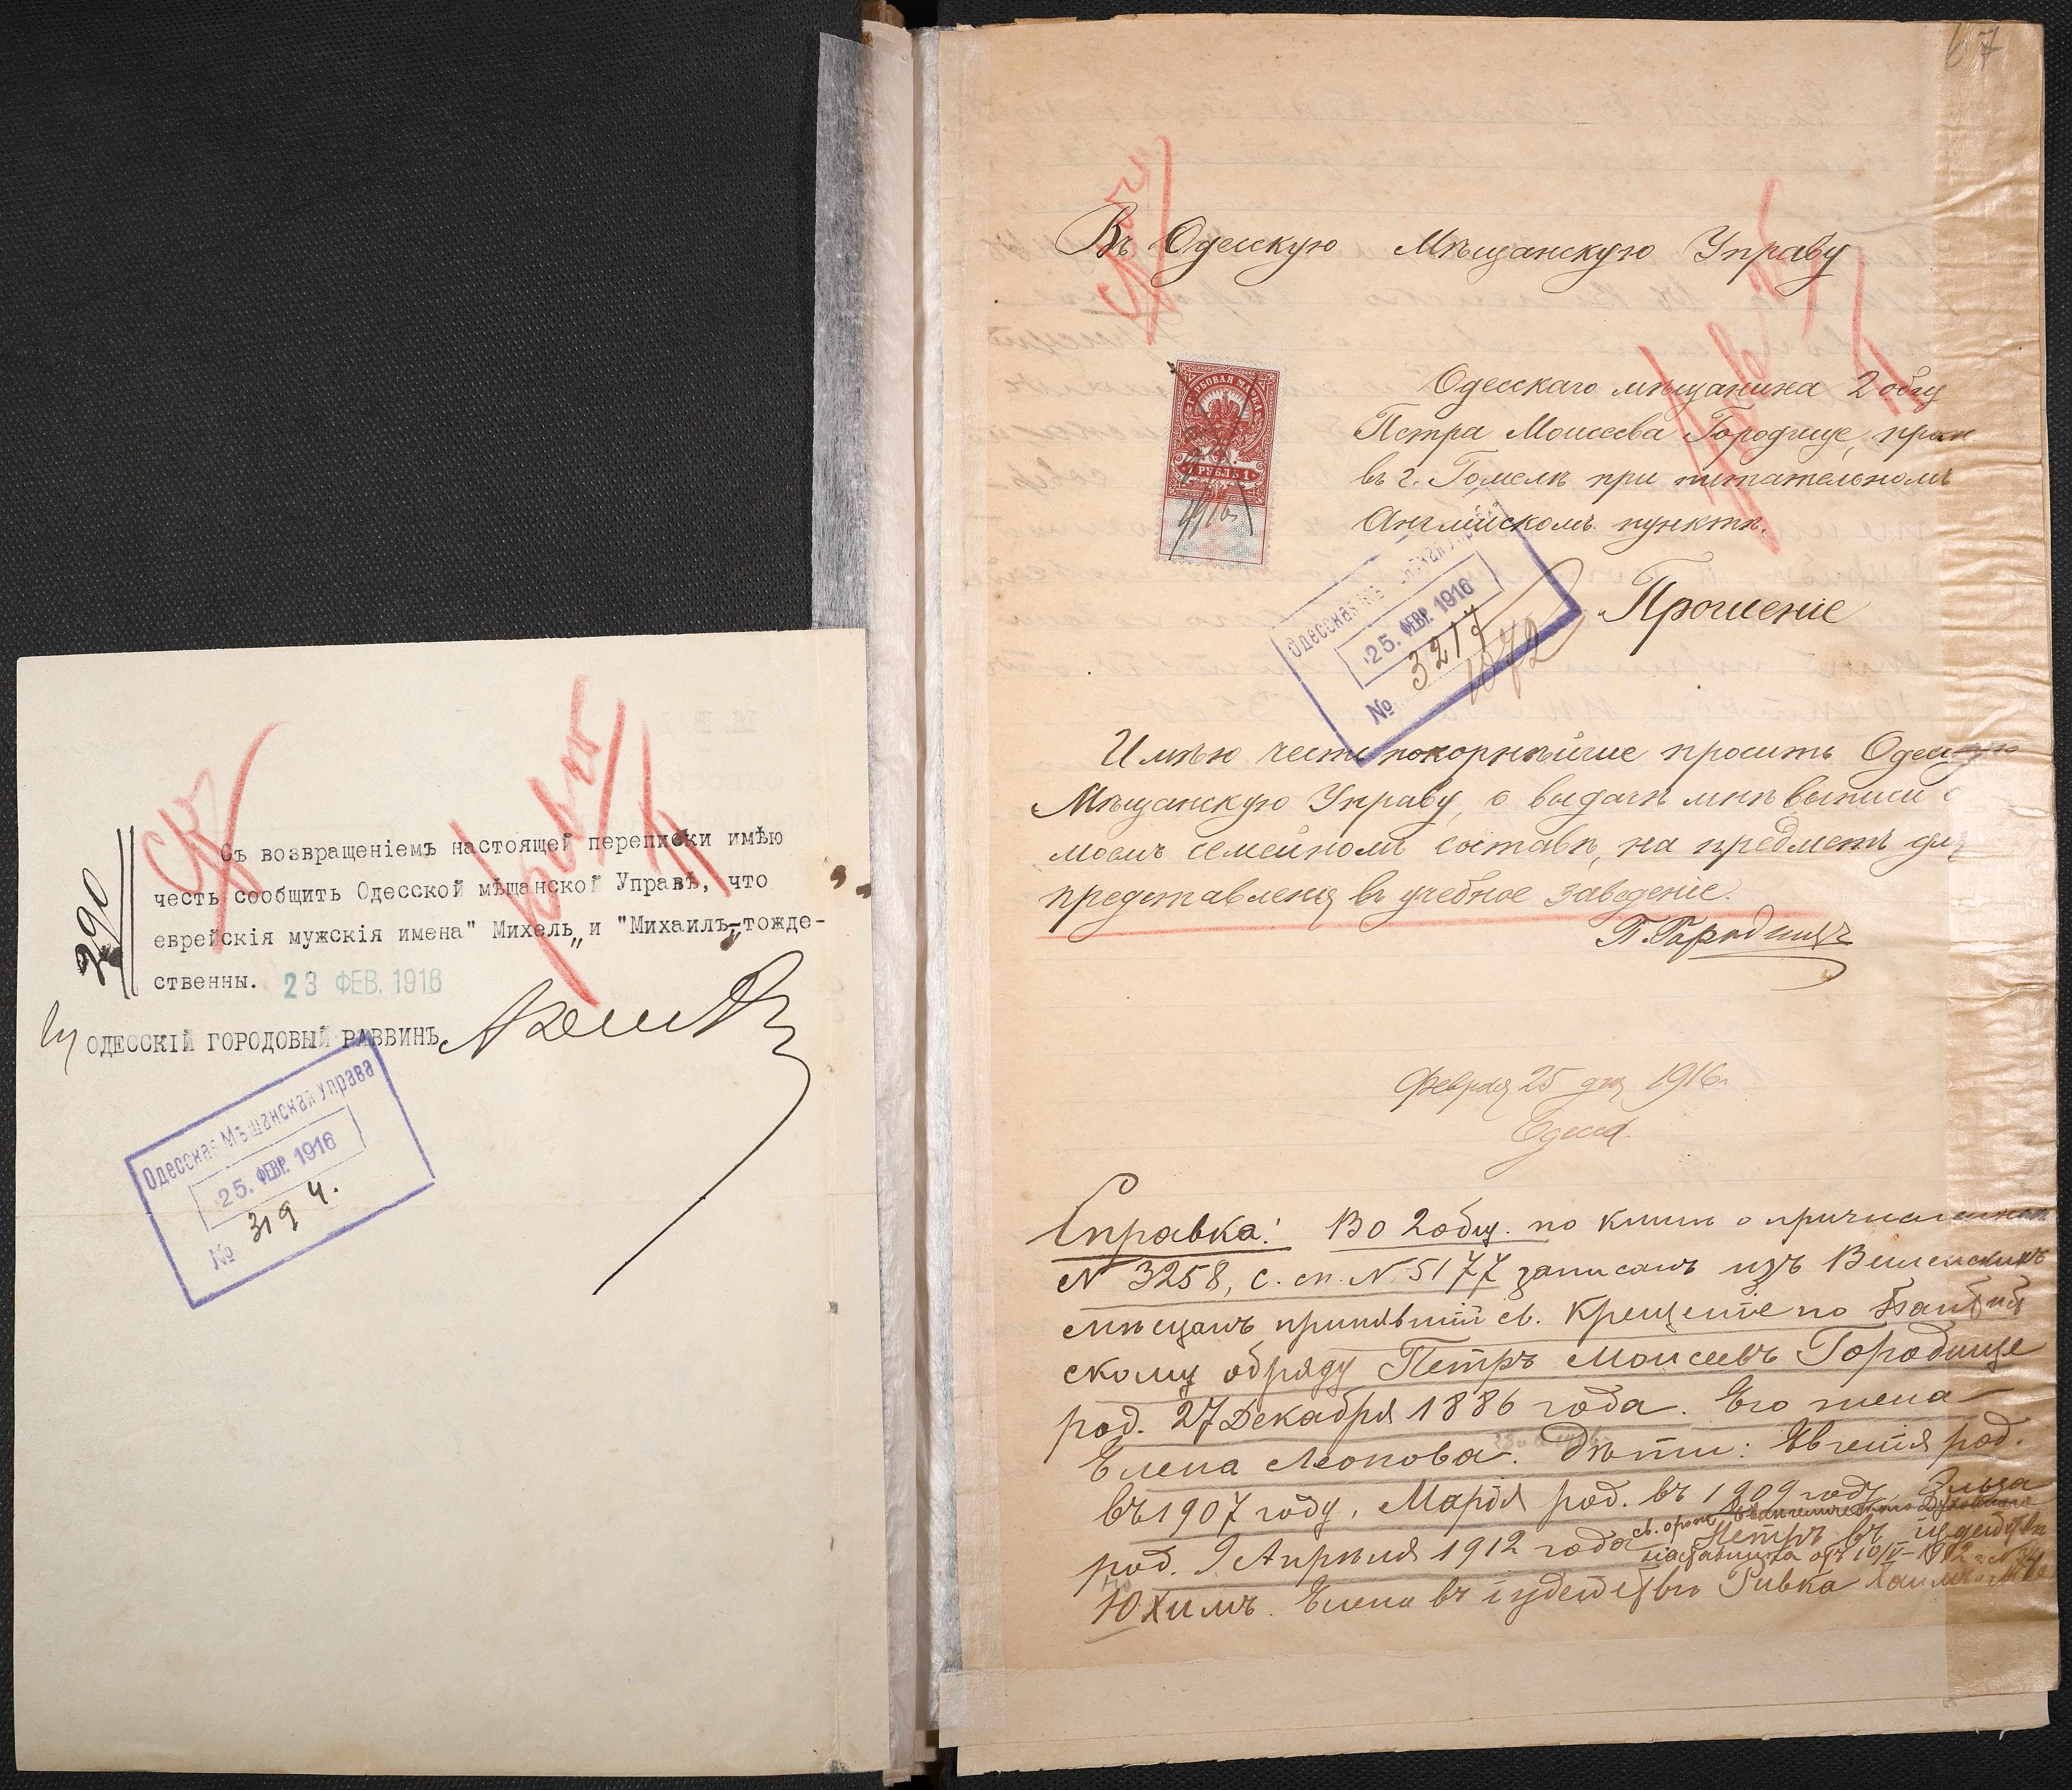 Съ возвращеніемъ настоящей переписки имѣю
честь сообщить Одесской мѣщанской Управѣ, что
еврейскія мужскія имена" Михель„ и "Михаилъ„-тожде-
ственны. 23 ФЕВ. 1916
290
ОДЕССКІЙ ГОРОДОВЫЙ РАВВИНЪ
Одесская Мѣщанская Управа
25. ФЕВР. 1916
№ 3194.
67
Въ Одесскую Мѣщанскую Управу
ГЕРБОВАЯ МАРКА
1 РУБЛЬ 1
1916
Одесскаго мѣщанина 2 общ
Петра Моисеева Городище, прож
въ г. Гомелѣ при питательномъ
Англійскомъ пунктѣ.
Прошеніе
Одесская Мѣщанская Управа
25. ФЕВР. 1916
№ 3217
1072
Имѣю честь покорнѣйше просить Одесскую
Мѣщанскую Управу, о выдачѣ мнѣ выписи о
моемъ семейномъ составѣ, на предметъ для
представленія въ учебное заведеніе.
П. Городищъ
Февраля 25 дня 1916 г.
Одесса.
Справка: Во 2 общ. по книгѣ о причисленн
N 3258, с. сп. N 5177 записанъ изъ Виленскихъ
мѣщанъ принявшій св. крещеніе по
скому обряду Петръ Моисеевъ Городище
род. 27 Декабря 1886 года. Его жена
Елена Леонова. Дѣти: Евгенія род.
въ 1907 году, Марія род. въ 1909 году, Эльза
род. 9 Апрѣля 1912 года Петръ въ іудействѣ
Юхимъ. Елена въ іудействѣ Ривка